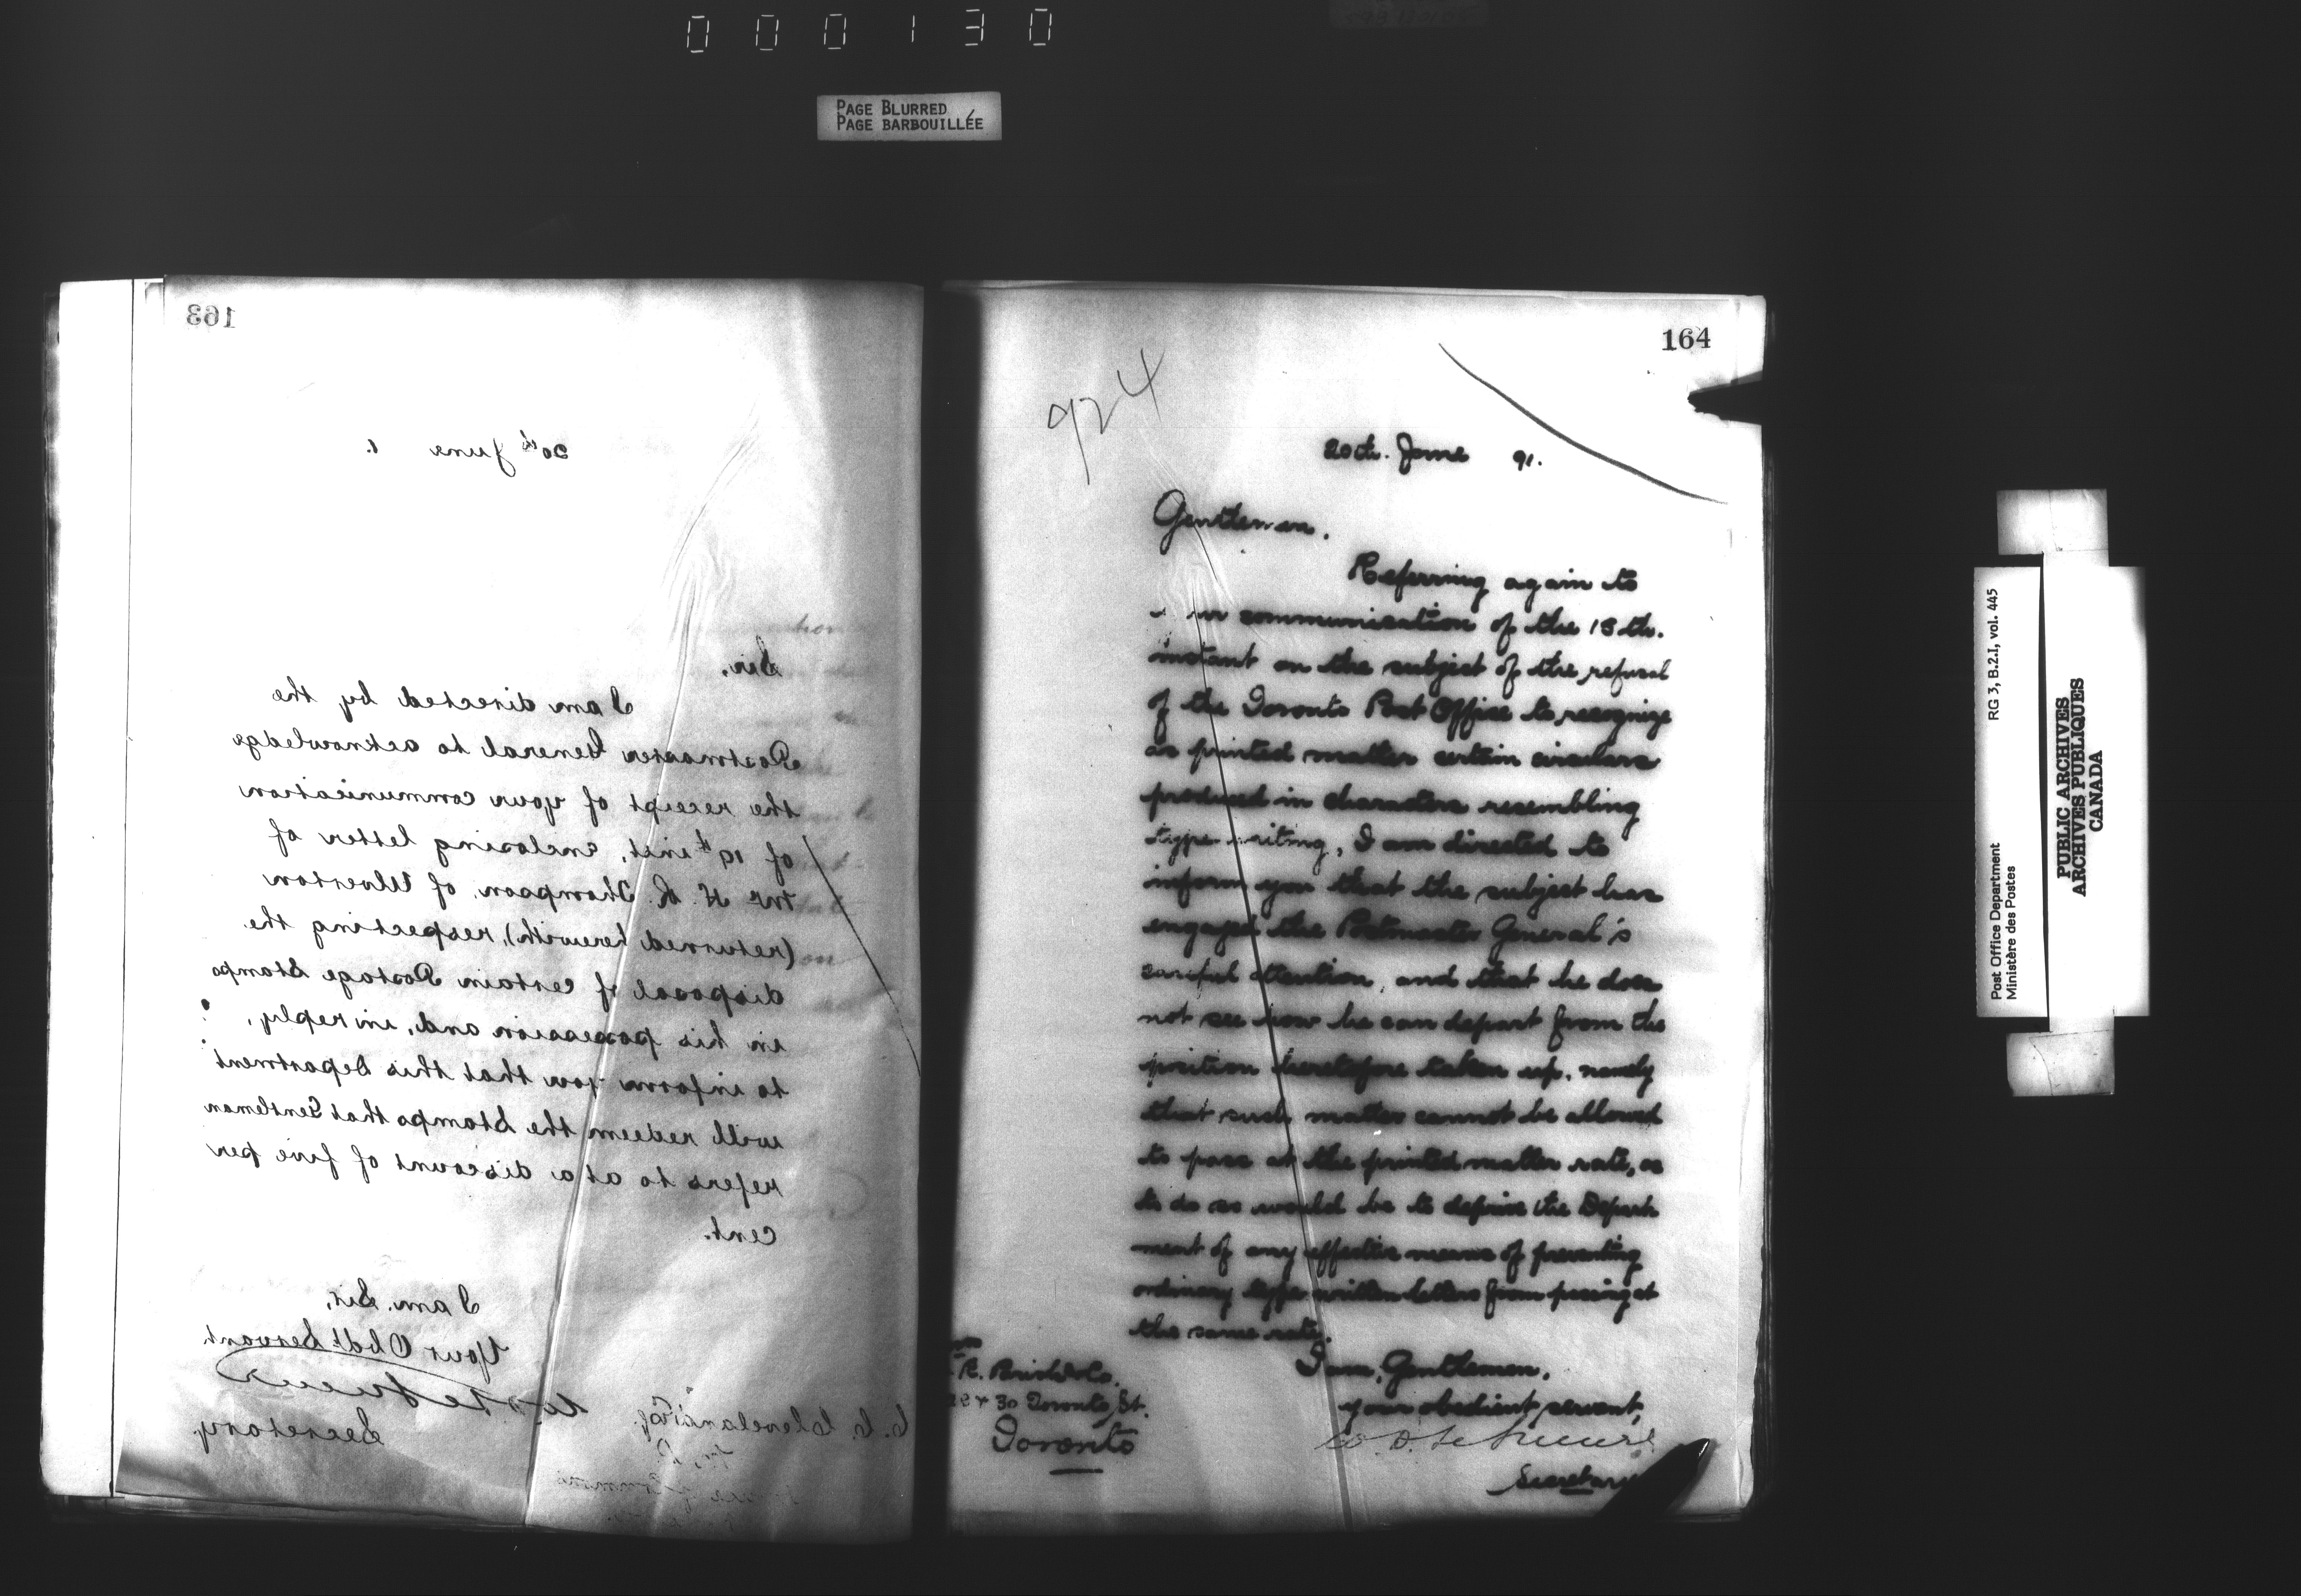 000130
PAGE BLURRED
PAGE BARBOUILLÉE
163
20th June 1.
Sir,
I am directed by the
Postmaster General to acknowledge
the receipt of your communication
of 19th inst, enclosing letter of
Mr H. R. Thompson, of Ulverton
(returned herewith), respecting the
disposal of certain Postage Stamps
in his possession and, in reply,
to inform you that this Department
will redeem the Stamps that Gentleman
refers to at a discount of five per
cent.
I am, Sir,
Your Obdt Servant
Secretary
C. C. Cleveland Esq.
M.P.
164
924
20th. June 91.
Gentlemen.
Referring again to
communication of the 18th.
instant on the subject of the refusal
of the Toronto Post Office to recognize
as printed matter certain circulars
produced in characters resembling
type writing, I am directed to
inform you that the subject has
engaged the Postmaster General's
careful attention, and that he does
not see how he can depart from the
position heretofore taken up, namely
that such matter cannot be allowed
to pass at the printed matter rate, as
to do so would be to deprive the Depart
ment of any effective means of preventing
ordinary type written letters from passing at
the same rate.
I am, Gentlemen,
your obedient servant,
W. D. LeSueur
Secretary
& 30 Toronto St.
Toronto
Post Office Department
Ministère des Postes
RG 3, B.2.I, vol. 445
PUBLIC ARCHIVES
ARCHIVES PUBLIQUES
CANADA